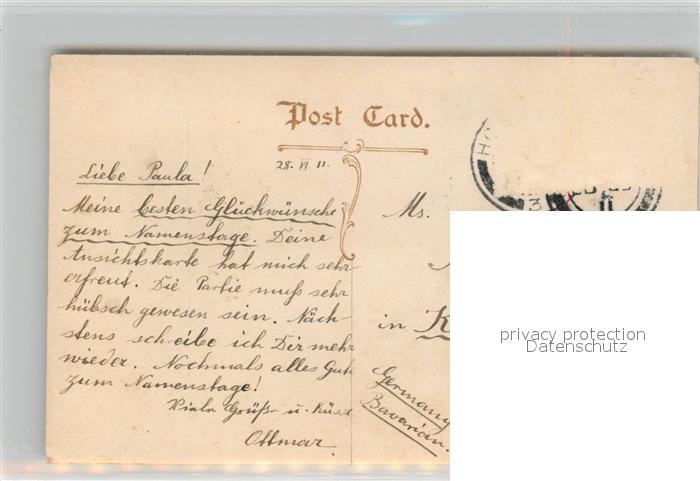 Post Card.
28. VI. 11.
Liebe Paula!
Meine besten Glückwünsche
zum Namenstage. Deine
Ansichtskarte hat mich sehr
erfreut. Die Partie muß sehr
hübsch gewesen sein. Näch-
stens schreibe ich Dir mehr
wieder. Nochmals alles Gute
zum Namenstage!
Viele Grüße u. Küsse
Ottmar.
Ms.
in K
Germany
Bavarian.
privacy protection
Datenschutz